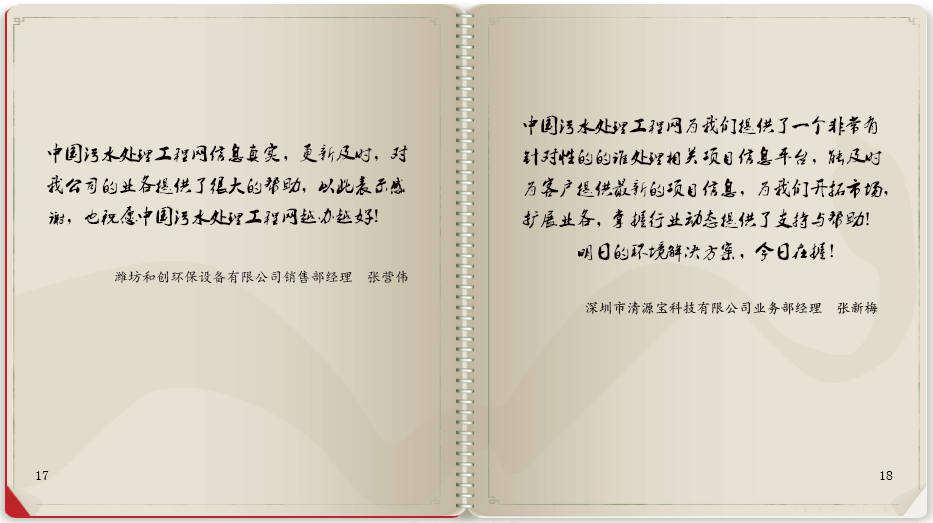 中国污水处理工程网信息真实，更新及时，对
我公司的业务提供了很大的帮助，以此表示感
谢，也祝愿中国污水处理工程网越办越好！
潍坊和创环保设备有限公司销售部经理　张营伟
17
中国污水处理工程网为我们提供了一个非常有
针对性的的谁处理相关项目信息平台，能及时
为客户提供最新的项目信息，为我们开拓市场，
扩展业务，掌握行业动态提供了支持与帮助！
明日的环境解决方案，今日在握！
深圳市清源宝科技有限公司业务部经理　张新梅
18